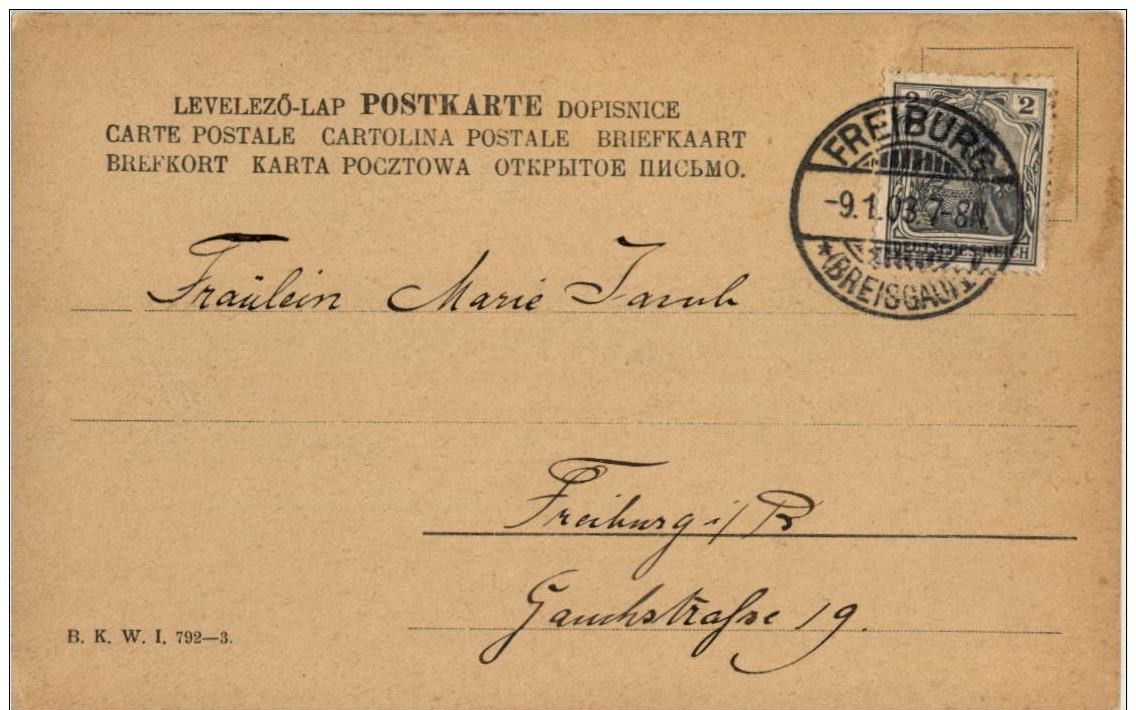 LEVELEZŐ-LAP POSTKARTE DOPISNICE
CARTE POSTALE CARTOLINA POSTALE BRIEFKAART
BREFKORT KARTA POCZTOWA ОТКРЫТОЕ ПИСЬМО.
2 2
DEUTSCHES REICH
FREIBURG
-9.1.03.7-8N.
*(BREISGAU)1
Fräulein Marie
Freiburg i/B
Gauchstraße 19.
B. K. W. I. 792—3.